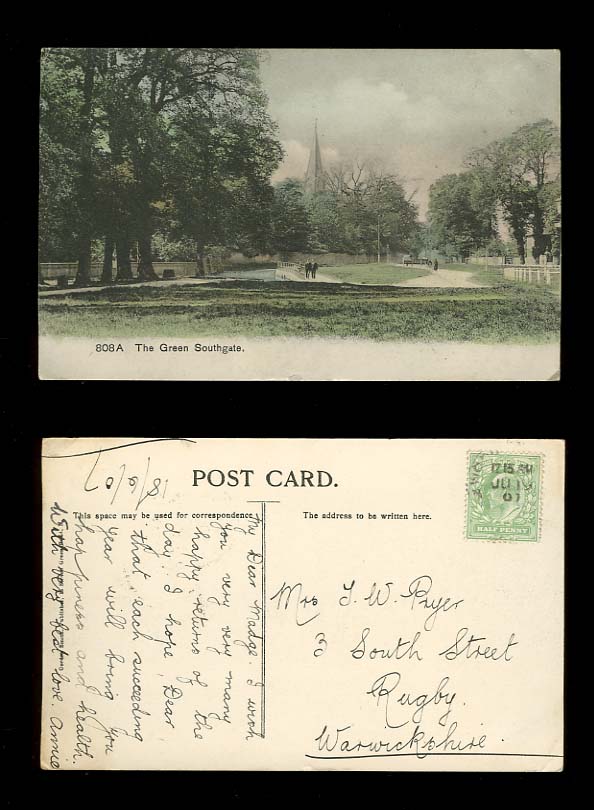 808A The Green Southgate.
POST CARD.
This space may be used for correspondence
The address to be written here.
12.15 AM
JU 19
07
HALF PENNY
18/6/07
My Dear Madge. I wish
you very very many
happy returns of the
day. I hope, Dear
that each succeeding
year will bring you
happiness and health.
With very best love. Annie
Mrs J. W. Pryer
3 South Street
Rugby.
Warwickshire.